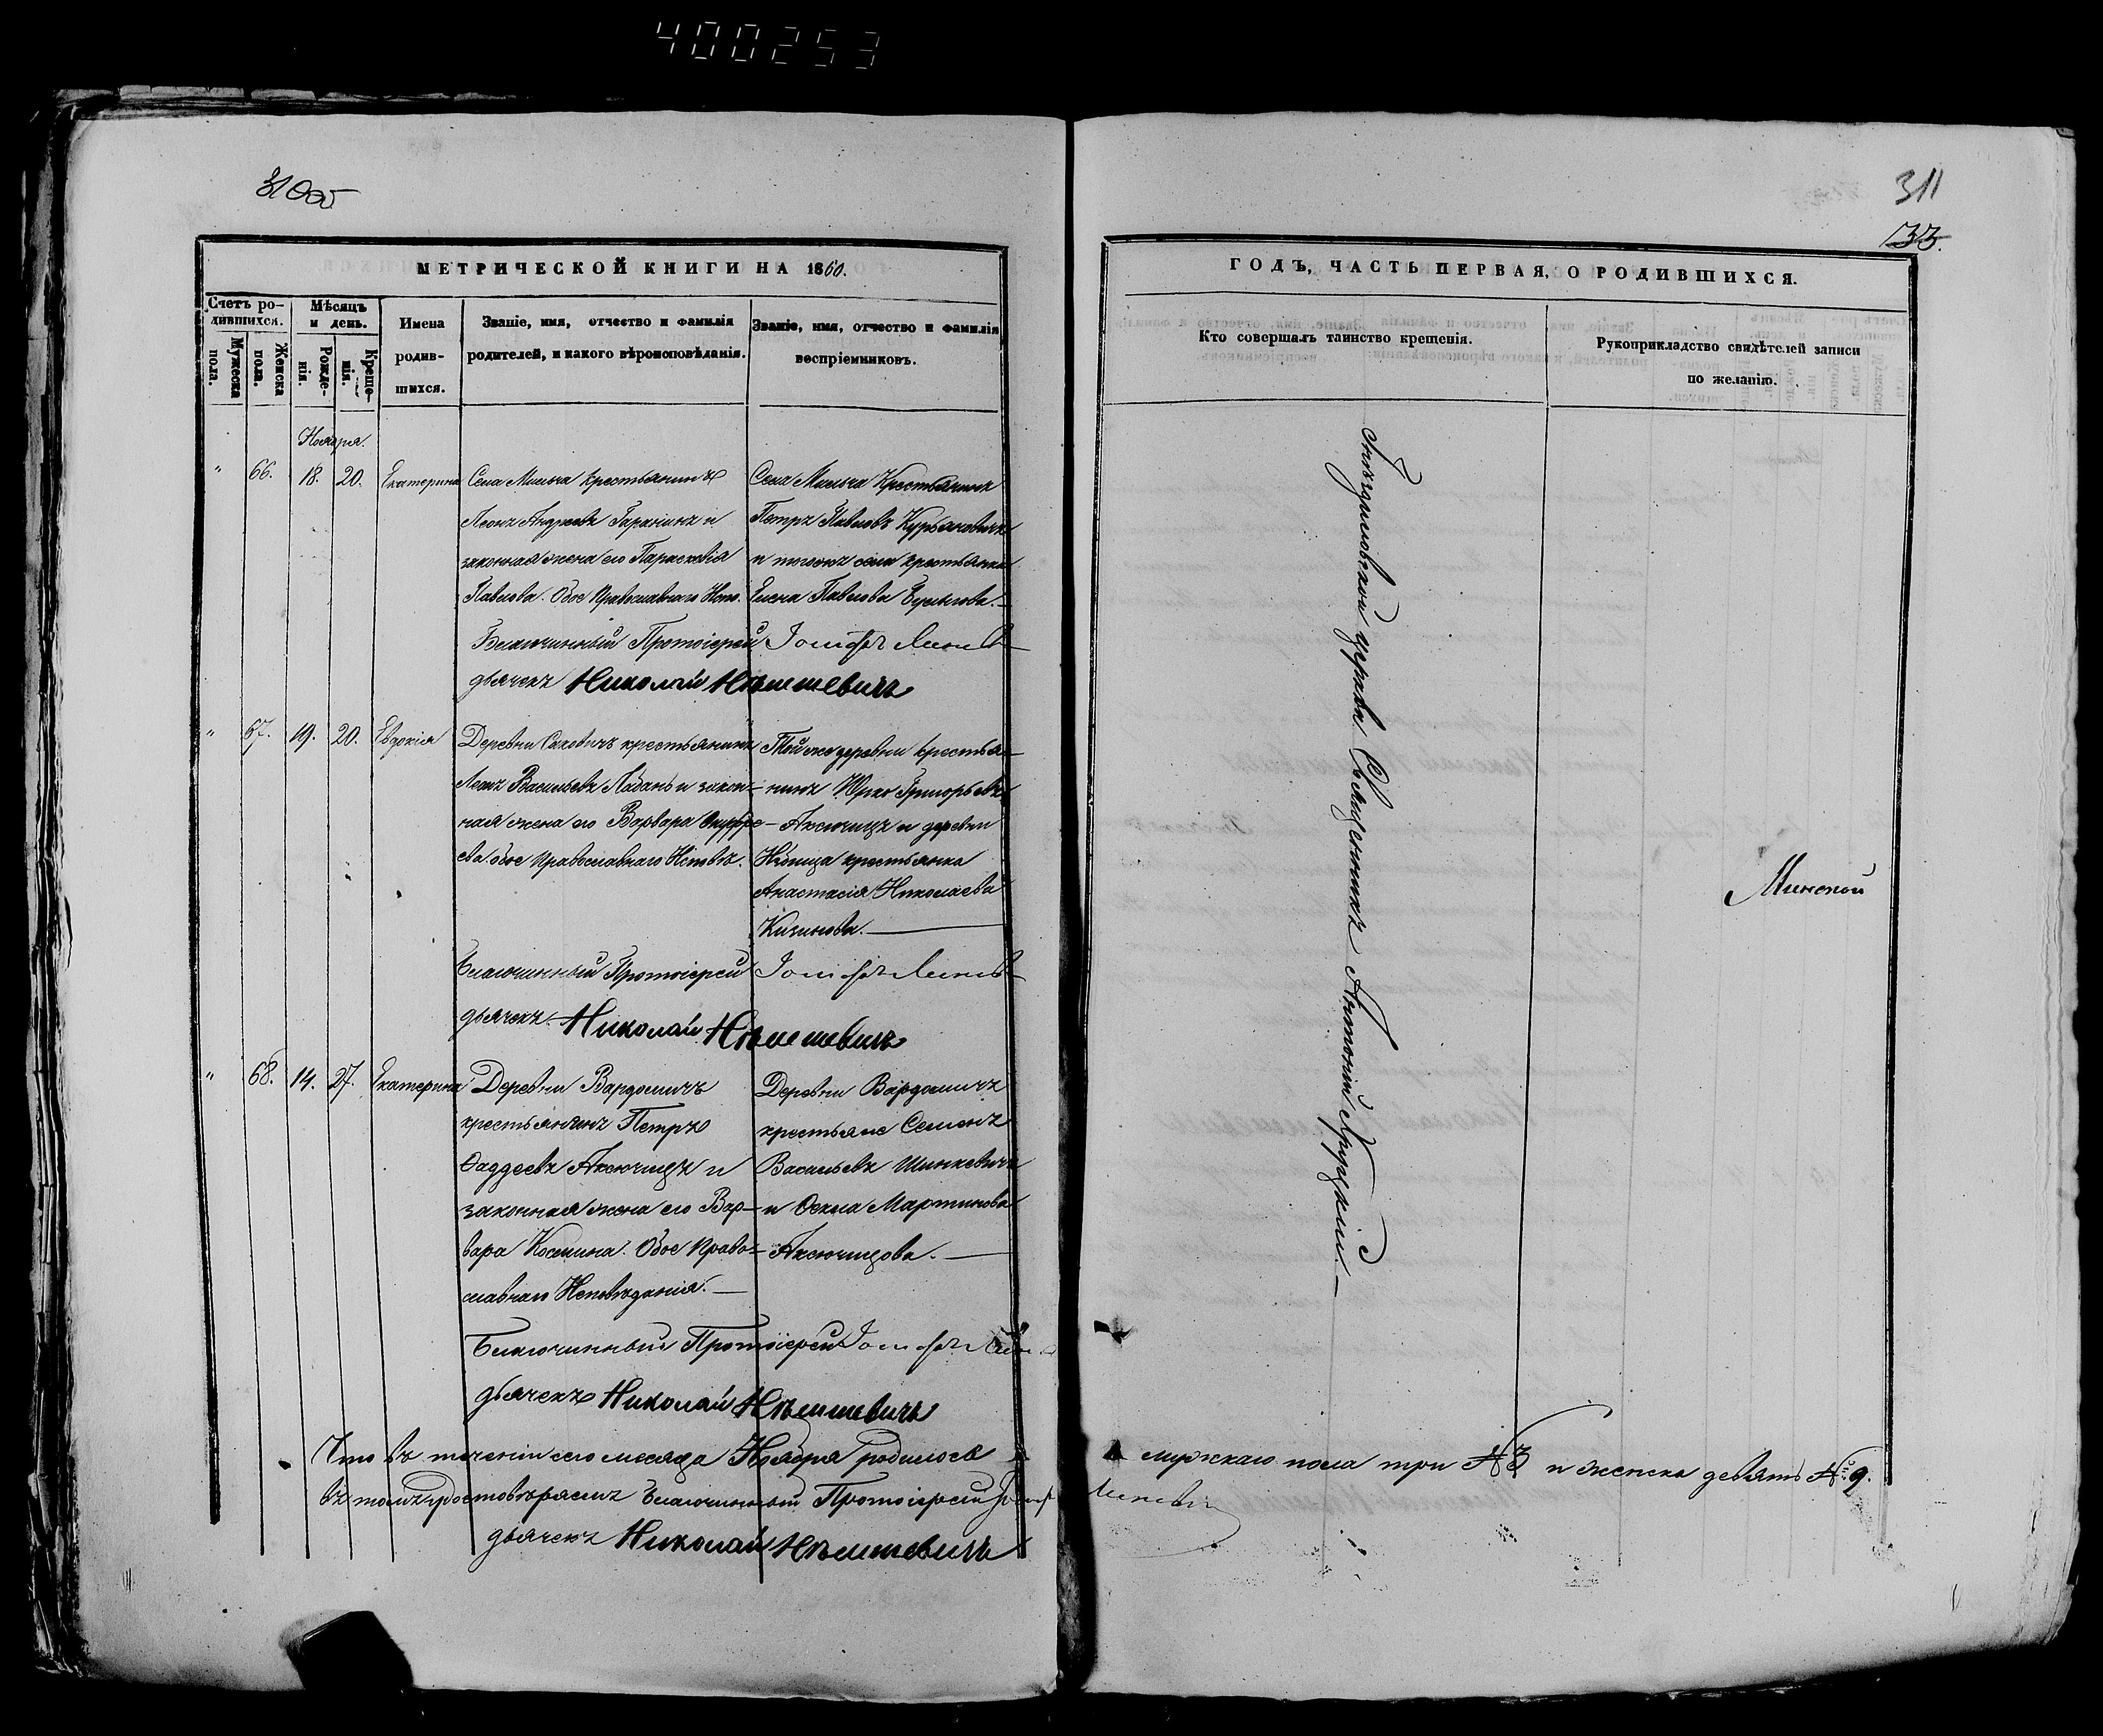 400253
310об
311
33.
МЕТРИЧЕСКОЙ КНИГИ НА 1860.
ГОДЪ, ЧАСТЬ ПЕРВАЯ, О РОДИВШИХСЯ.
Счетъ ро-
дившихся.
Мужеска
пола.
Женска
пола.
Мѣсяцъ
и день.
Рожде-
нія.
Креще-
нія.
Имена
родив-
шихся.
Званіе, имя, отчество и фамилія
родителей, и какого вѣроисповѣданія.
Званіе, имя, отчество и фамилія
воспріемниковъ.
Кто совершалъ таинство крещенія.
Рукоприкладство свидѣтелей записи
по желанію.
Ноября.
" 66. 18. 20. Екатерина
Села Мильча крестьянинъ
Леонъ Андреевъ Гаранинъ и
законная жена его Параскевія
Павлова. Обое Православнаго Испо.
Села Мильча Крестьянинъ
Петръ Павловъ Курьяновичъ
и тогожъ села крестьянка
Елена Павлова
Благочинный Протоіерей Іосифъ
дьячекъ Николай Нѣмшевичъ
" 67. 19. 20. Евдокія
Деревни Саковичъ крестьянинъ
Леонъ Васильевъ Лабань и закон-
ная жена его Варвара Онуфре-
ева. обое Православнаго Исповѣ.
Той же деревни крестья-
нинъ Юрко Григорьевъ
Аксючицъ и деревни
крестьянка
Анастасія Николаева
Благочинный Протоіерей Іосифъ
дьячекъ Николай Нѣмшевичъ
" 68. 14. 27. Екатерина
Деревни Вардомичъ
крестьянинъ Петръ
Фаддеевъ Аксючицъ и
законная жена его Вар-
вара Космина. Обое Право-
славнаго Исповѣданія.
Деревни Вардомичъ
крестьяне Семенъ
Васильевъ Шинкевичъ
и Ѳекла Мартинова
Аксючицова.
Благочинный Протоіерей Іосифъ
дьячекъ Николай Нѣмшевичъ
Что въ теченіи сего месяца Ноября родилось мужскаго пола три № 3 и женска девять № 9.
въ томъ удостовѣряемъ Благочинный Протоіерей Іосифъ
дьячекъ Николай Нѣмшевичъ
церкви Священникъ Антоній Хруцкій.
Минской